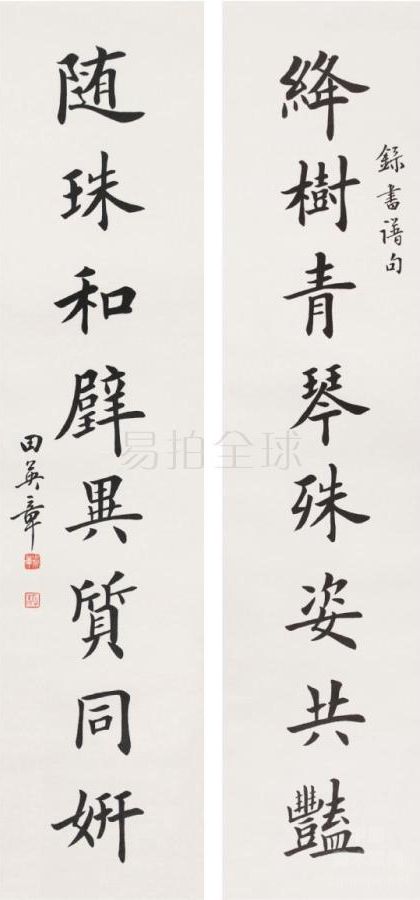 絳樹青琴殊姿共豔
録書譜句
随珠和璧異質同妍
田英章
易拍全球